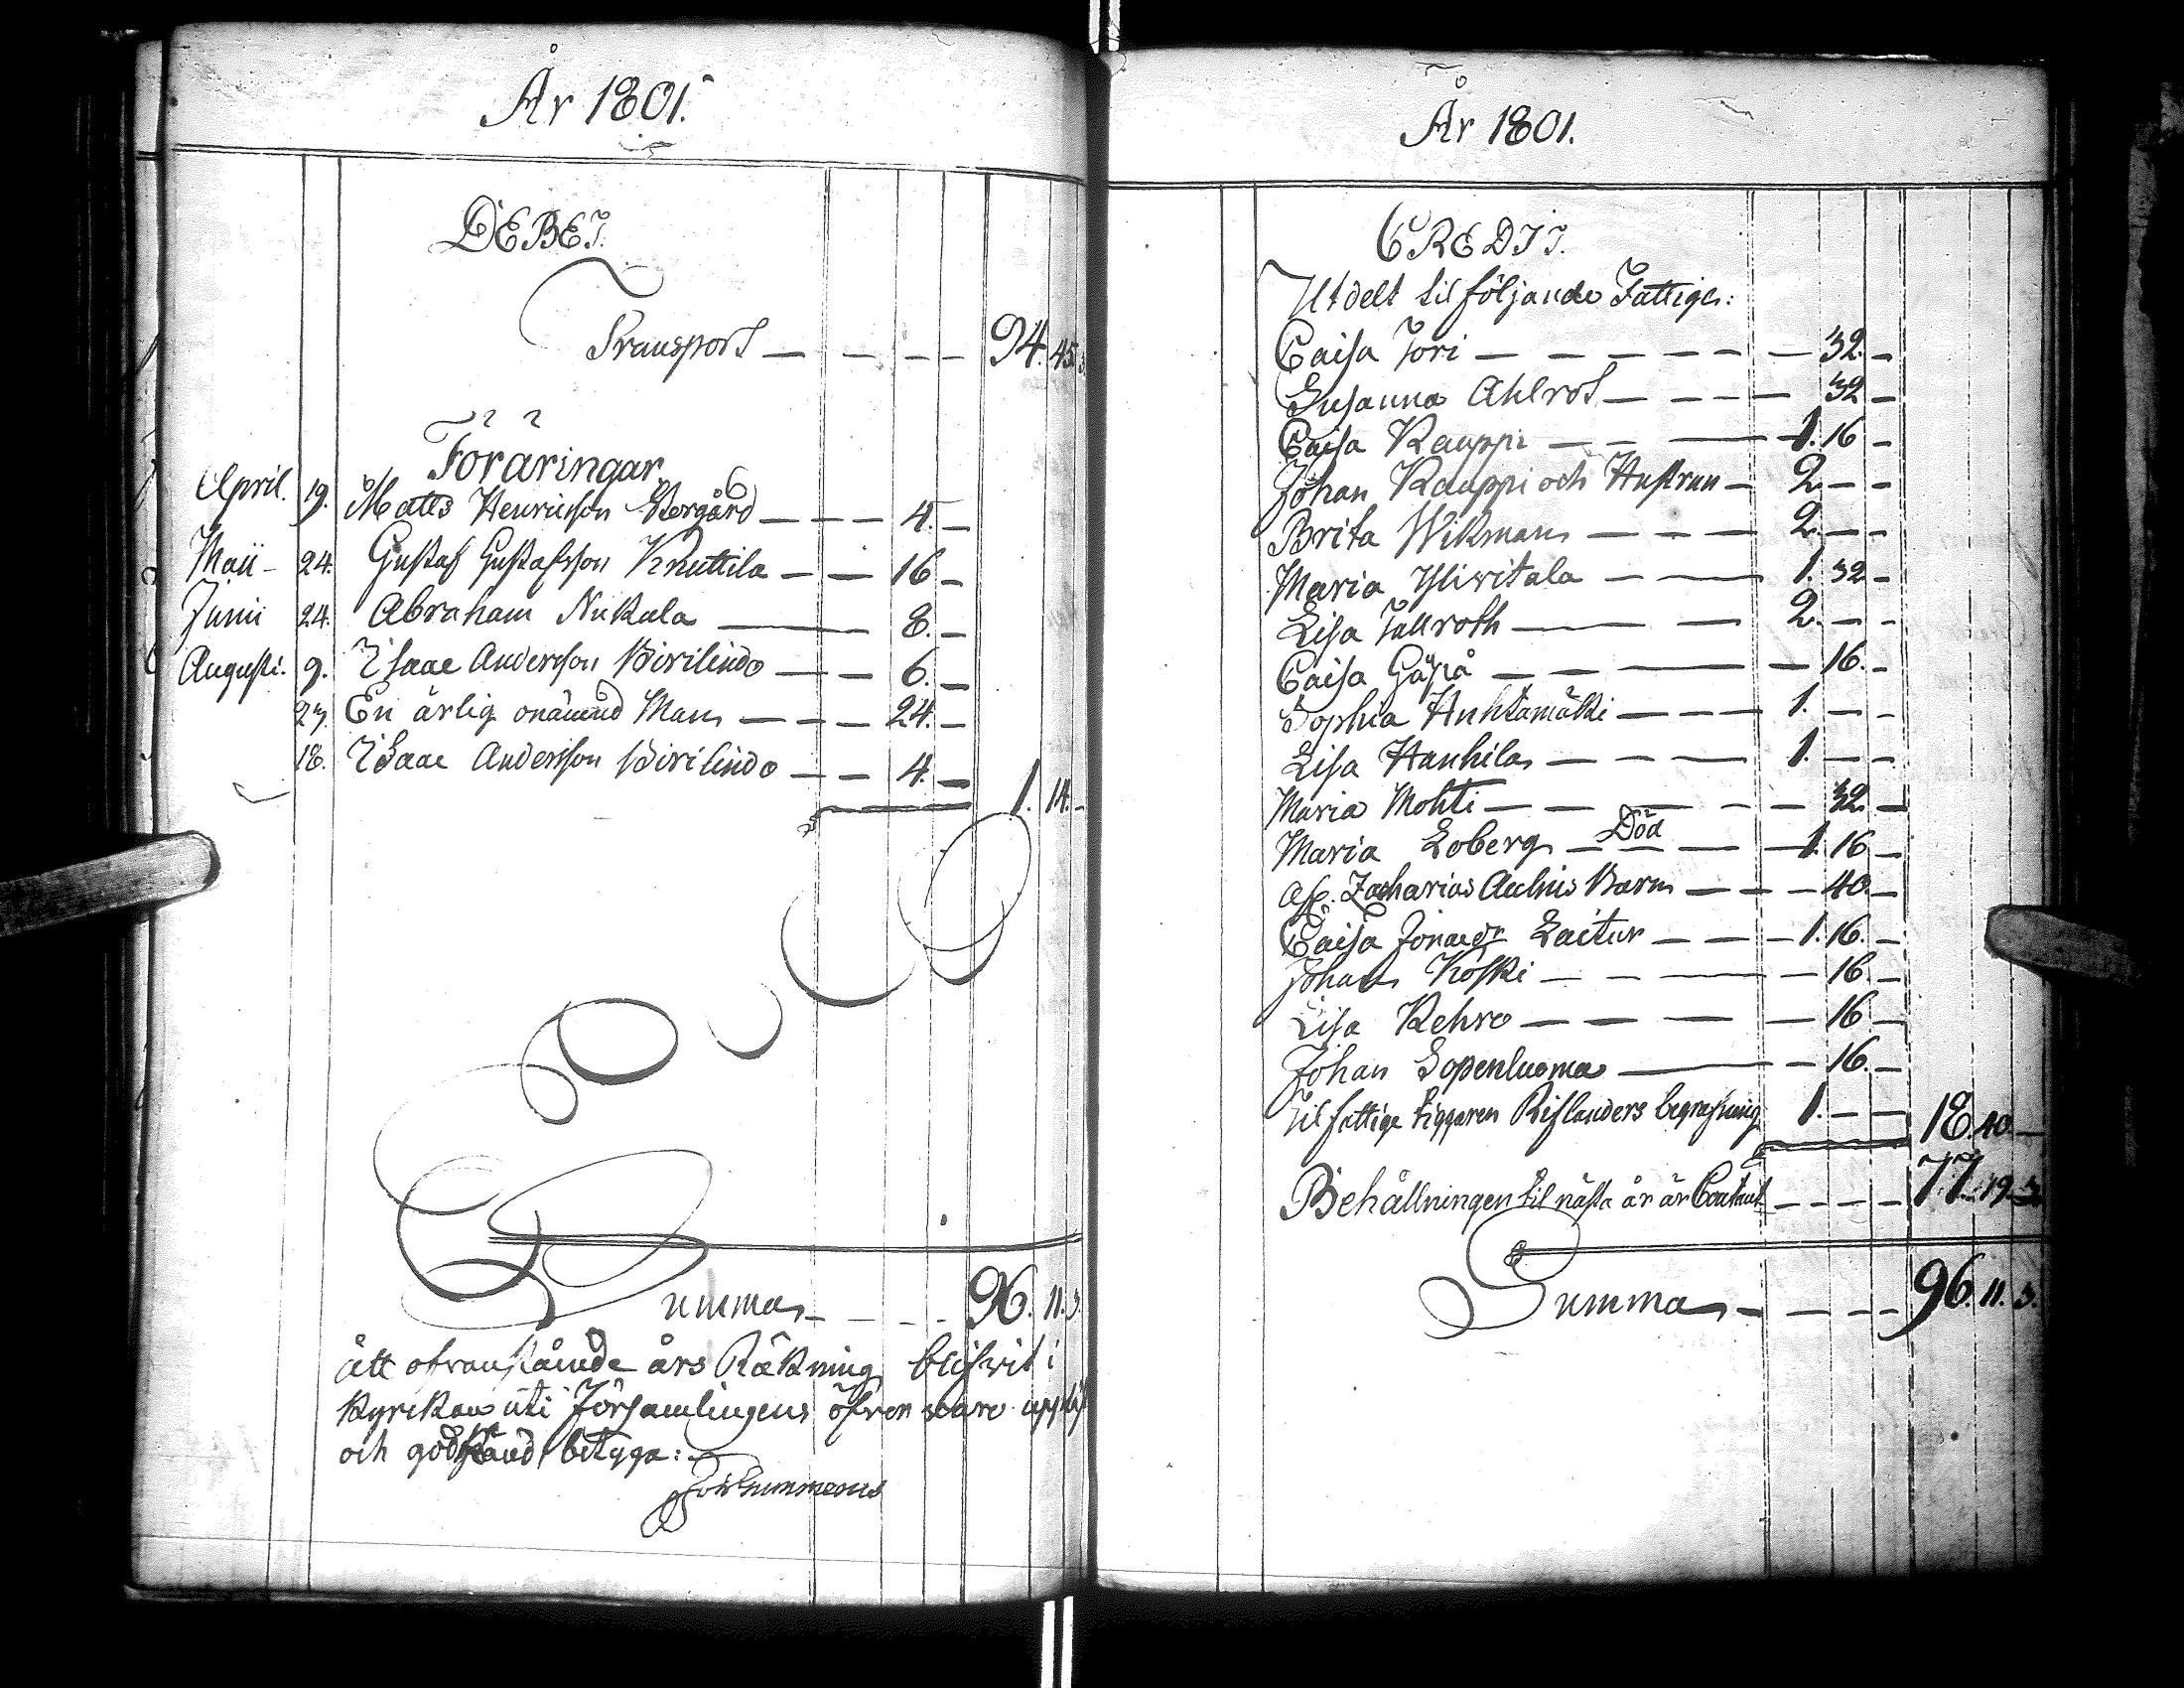 År 1801.
DEBET.
Transport — — — — 94. 45. 3.
Föräringar
April. 19. Matts Henricsson Norgård — — — 4. —
Maii — 24. Gustaf Gustafsson Knuttila — — 16 —
Junii 24. Abraham Nukala — 8. —
Augusti. 9. Isaac Andersson Birilindo — — 6. —
27. En ärlig onämnd Man — — — 24. —
18. Isaac Andersson Birilindo — — 4. — 1. 14. —
Summa — — — — 96. 11. 3.
att ofvanstående års Räkning blifvit i
Kyrkan uti Församlingens öfver varo uppläst
och godkänd betyga:
År 1801.
CREDIT.
Utdelt til följande Fattige:
Caisa Jori — — — — — — — 32. —
Susanna Ahlrot — — — — 32 —
Caisa Kauppi — — — 1. 16 —
Johan Kauppi och Hustrun — 2 — —
Brita Wikman — — — 2. — —
Maria Yliwitala — — 1. 32 —
Lisa Tallroth — — — 2. — —
Caisa Gåspå — — — — 16. —
Sophia Huhtamäki — — — 1. — —
Lisa Hanhila — — — — 1. — —
Maria Mohti — — — — — 32 —
Maria Loberg — Död — — 1. 16 —
afl. Zacharias Aulins Barn — — — 40. —
Caisa Jonaedr Laitur — — — 1. 16. —
Johan Koski — — — — 16. —
Lisa Rehvo — — — — — 16 —
Johan Sopenluoma — — 16. —
Til fattige tiggaren Riflanders begrafning 1. — — 18. 40. —
Behållningen til nästa år är Contant — — — — 77. 19. 3.
Summa — — — — 96. 11. 3.